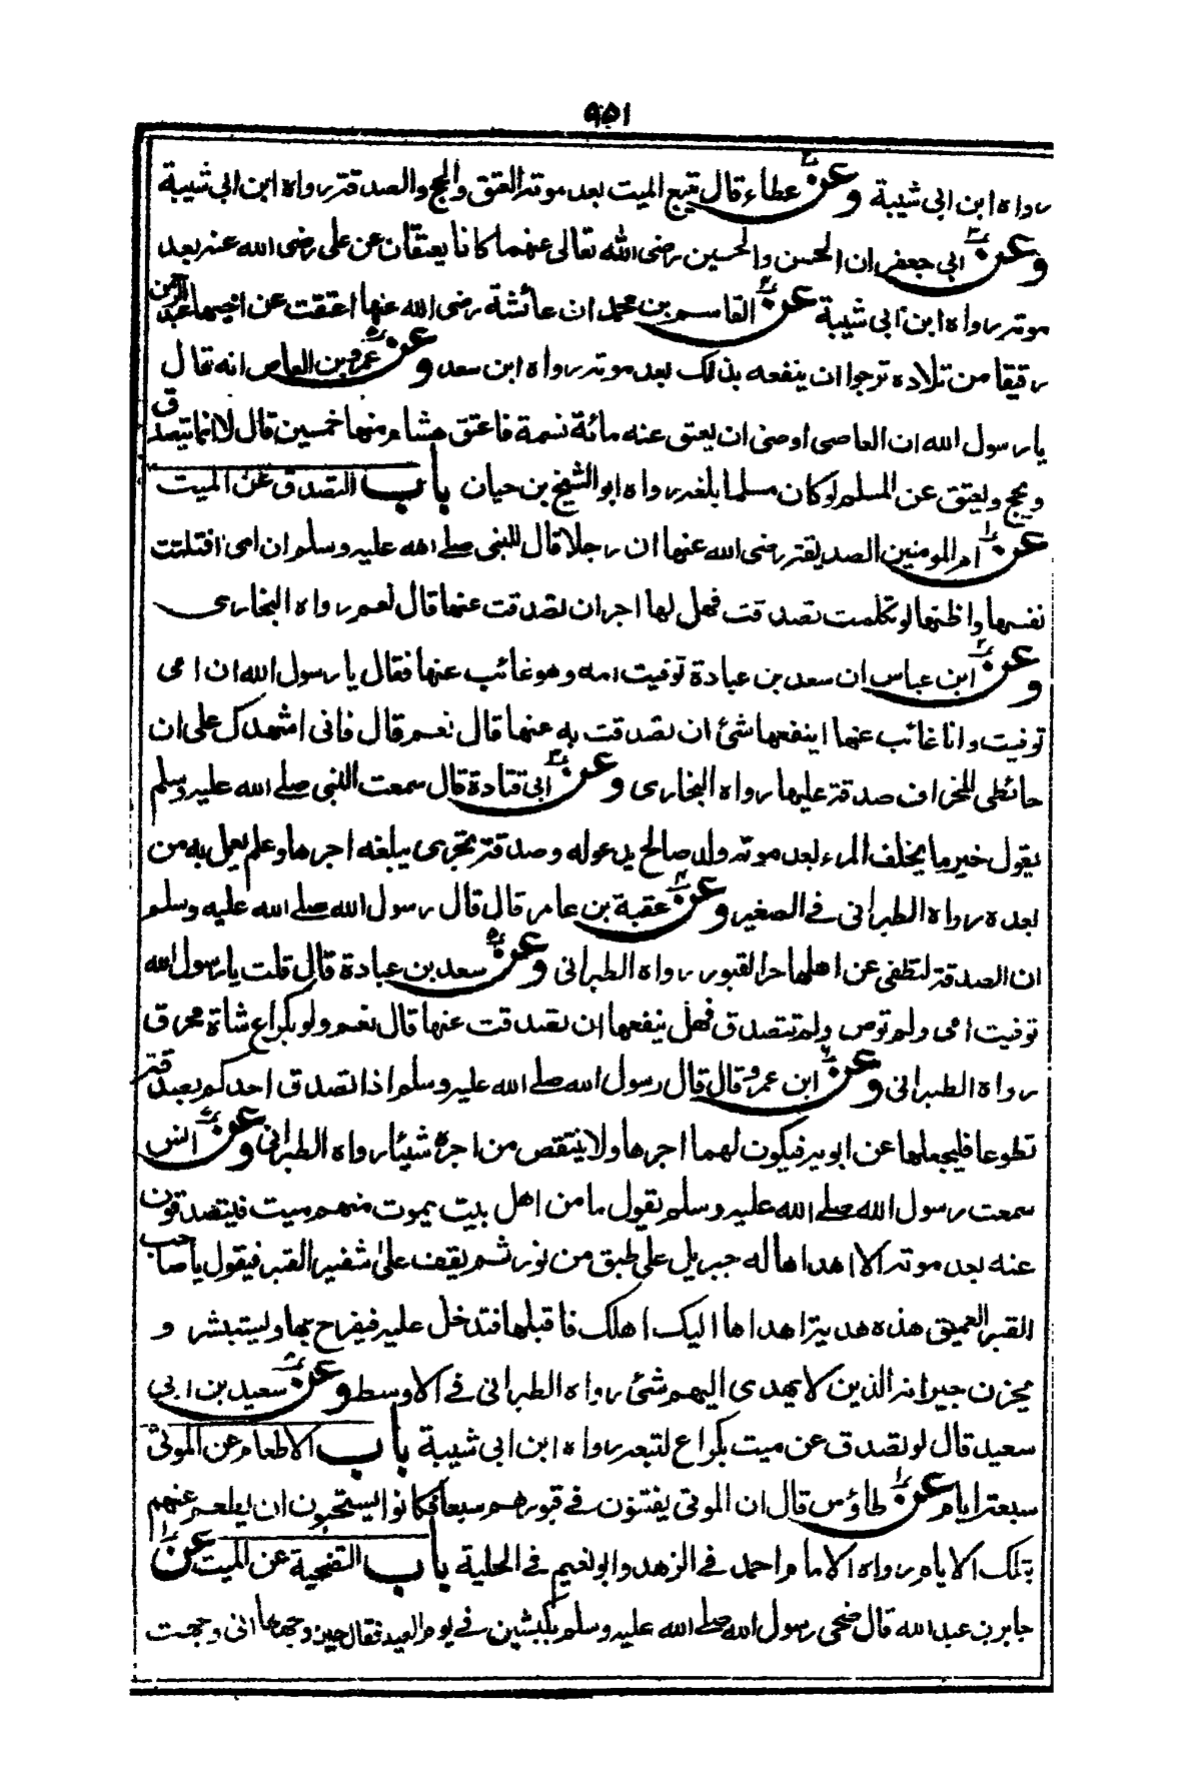 ٩٥١
رواه ابن ابی شیبة وعن عطاء قال یتبع المیت بعد موته العتق والحج والصدقة رواه ابن ابی شیبة
وعن ابی جعفر ان الحسن والحسین رضی الله تعالی عنهما کانا یعتقان عن علی رضی الله عنه بعد
موته رواه ابن ابی شیبة عن القاسم بن محمد ان عائشة رضی الله عنها اعتقت عن اخیها عبد الرحمن
رقیقا من تلاده ترجوا ان ینفعه بذلک بعد موته رواه ابن سعد وعن عمرو بن العاص انه قال
یا رسول الله ان العاصی اوصی ان یعتق عنه مائة نسمة فاعتق هشام منها خمسین قال لا انما یتصدق
ویحج ویعتق عن المسلم لو کان مسلما بلغه رواه ابو الشیخ بن حیان باب التصدق عن المیت
عن ام المومنین الصدیقة رضی الله عنها ان رجلا قال للنبی صلے الله علیه وسلم ان امی افتلتت
نفسها واظنها لو تکلمت تصدقت فهل لها اجر ان تصدقت عنها قال نعم رواه البخاری
وعن ابن عباس ان سعد بن عبادة توفیت امه وهو غائب عنها فقال یا رسول الله ان امی
توفیت وانا غائب عنها اینفعها شئ ان تصدقت به عنها قال نعم قال فانی اشهدک علی ان
حائطی المخراف صدقة علیها رواه البخاری وعن ابی قتادة قال سمعت النبی صلے الله علیه وسلم
یقول خیر ما یخلف المرء بعد موته ولد صالح یدعو له وصدقة تجری یبلغه اجرها وعلم یعمل به من
بعده رواه الطبرانی فے الصغیر وعن عقبة بن عامر قال قال رسول الله صلے الله علیه وسلم
ان الصدقة لتطفی عن اهلها حر القبور رواه الطبرانی وعن سعد بن عبادة قال قلت یا رسول الله
توفیت امی ولم توص ولم تتصدق فهل ینفعها ان تصدقت عنها قال نعم ولو بکراع شاة محرق
رواه الطبرانی وعن ابن عمرو قال قال رسول الله صلے الله علیه وسلم اذا تصدق احدکم بصدقة
تطوعا فلیجعلها عن ابویه فیکون لهما اجرها ولا ینتقص من اجره شیئا رواه الطبرانی وعن انس
سمعت رسول الله صلے الله علیه وسلم یقول ما من اهل بیت یموت منهم میت فیتصدقون
عنه بعد موته الا اهداها له جبریل علی طبق من نور ثم یقف علی شفیر القبر فیقول یا صاحب
القبر العمیق هذه هدیة اهداها الیک اهلک فاقبلها فتدخل علیه فیفرح بها ویستبشر و
یحزن جیرانه الذین لا یهدی الیهم شئ رواه الطبرانی فے الاوسط وعن سعید بن ابی
سعید قال لو تصدق عن میت بکراع لتبعه رواه ابن ابی شیبة باب الاطعام عن الموتی
سبعة ایام عن طاؤس قال ان الموتی یفتنون فے قبورهم سبعا فکانوا یستحبون ان یطعم عنهم
بتلک الایام رواه الامام احمد فے الزهد وابو نعیم فے الحلیة باب التضحیة عن المیت عن
جابر بن عبد الله قال ضحی رسول الله صلے الله علیه وسلم بکبشین فے یوم العید فقال حین وجهها انی وجهت